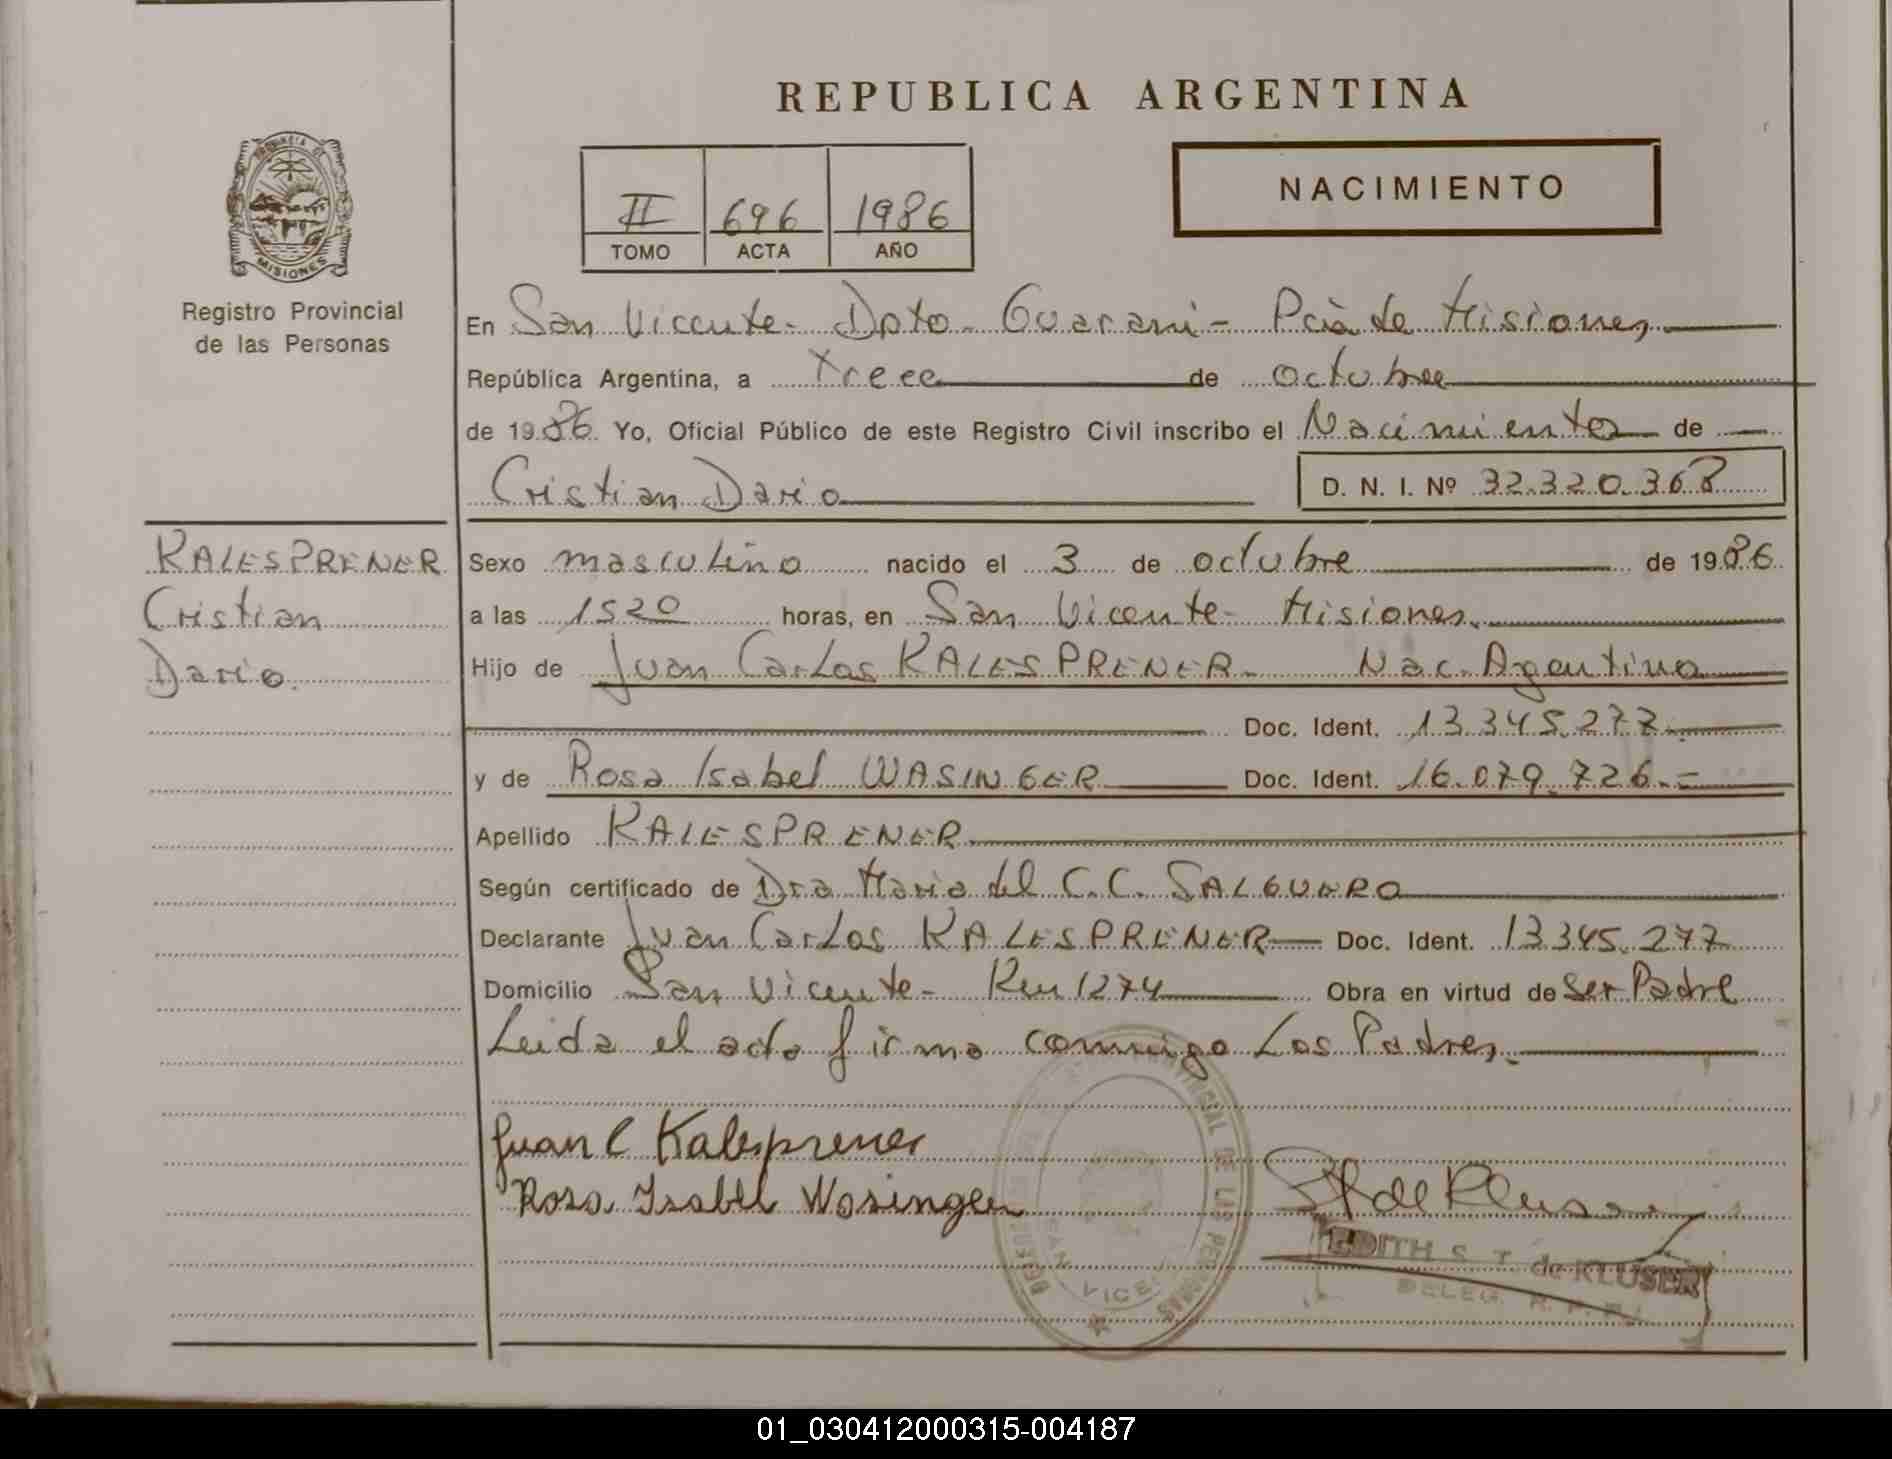 REPUBLICA ARGENTINA
NACIMIENTO
II 696 1986
TOMO ACTA AÑO
PROVINCIA DE
MISIONES
Registro Provincial
de las Personas
En San Vicente - Dpto. Guarani - Pcia de Misiones
República Argentina, a trece de octubre
de 1986. Yo, Oficial Público de este Registro Civil inscribo el Nacimiento de
Cristian Dario D. N. I. Nº 32.320.368
KALESPRENER
Cristian
Dario.
Sexo masculino nacido el 3 de octubre de 1986
a las 1520 horas, en San Vicente - Misiones.
Hijo de Juan Carlos KALESPRENER - Nac. Agentina
Doc. Ident. 13.345.277.
y de Rosa Isabel WASINGER Doc. Ident. 16.079.726.-
Apellido KALESPRENER
Según certificado de Dra Maria del C.C. SALGUERO
Declarante Juan Carlos KALESPRENER Doc. Ident. 13.345.277
Domicilio San Vicente - Km 1274 Obra en virtud de Ser Padre
Leida el acta firma conmigo Los Padres.
Juan C Kalesprener
Rosa Isabel Wasinger
de Kluser
EDITH S. T. de KLUSER
DELEG. R. P. P.
PROVINCIAL DE LAS PERSONAS
SAN VICE
01_030412000315-004187